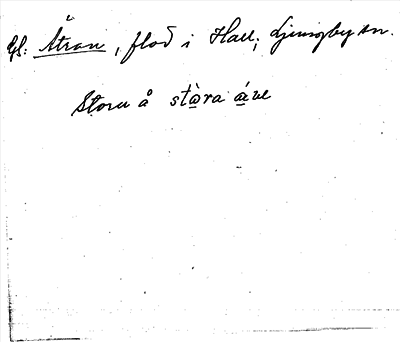 Gl: Ätran, flod i Hall; Ljungby sn.
Stora å stàra áne